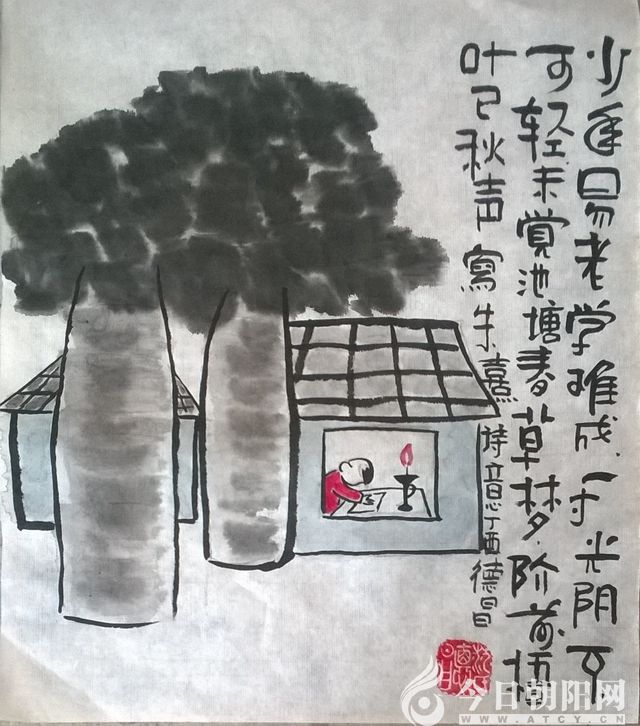 少年易老学难成.一寸光阴不
可轻.未觉池塘春草梦.阶前梧
叶已秋声 寫朱熹诗意丁酉德昌
今日朝阳网